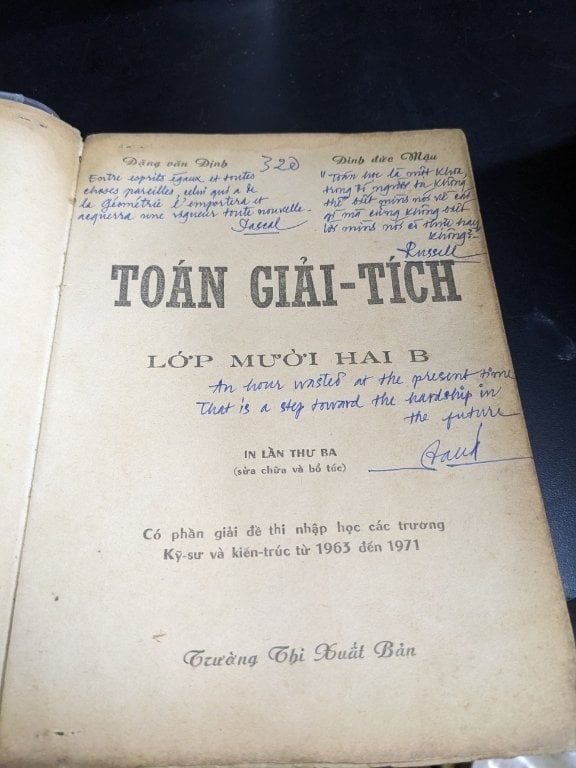 Đặng văn Định
320
Đinh đức Mậu
Entre esprits égaux et toutes
choses pareilles, celui qui a de
la Géométrie l'emportera et
acquerra une vigueur toute nouvelle.
Pascal
"Toán học là một khoa,
trong đó người ta không
thể biết mình nói về cái
gì mà cũng không biết
lời mình nói có thực hay
không".
Russell
TOÁN GIẢI-TÍCH
LỚP MƯỜI HAI B
An hour wasted at the present time
That is a step toward the hardship in
the future
IN LẦN THƯ BA
(sửa chữa và bổ túc)
Có phần giải đề thi nhập học các trường
Kỹ-sư và kiến-trúc từ 1963 đến 1971
Trường Thi Xuất Bản